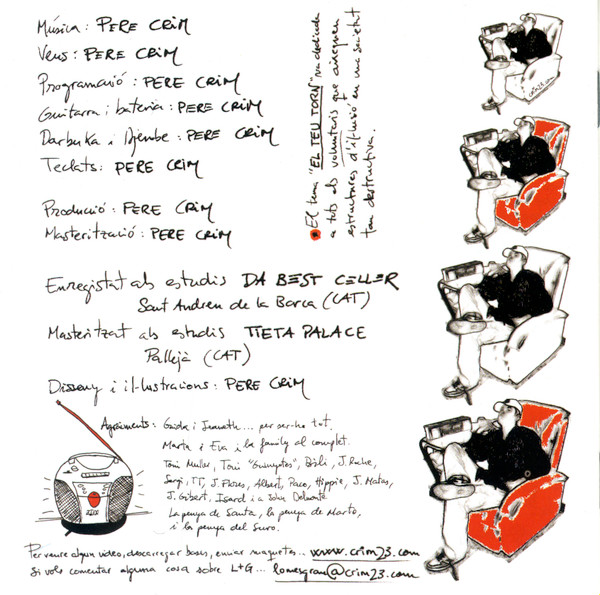 Música: PERE CRIM
Veus: PERE CRIM
Programació: PERE CRIM
Guitarra i bateria: PERE CRIM
Darbuka i Djembe: PERE CRIM
Teclats: PERE CRIM
Producció: PERE CRIM
Masterització: PERE CRIM
El tema "EL TEU TORN" va dedicada
a tots als voluntaris que aixequen
estructures d'il·lusió en una societat
tan destructiva.
crim23.com
Enregistrat als estudis DA BEST CELLER
Sant Andreu de la Barca (CAT)
Masteritzat als estudis TIETA PALACE
Pallejà (CAT)
Disseny i il·lustracions: PERE CRIM
Agraïments: Guida i Jeanette... per ser-ho tot.
Marta i Eva i la family al complet.
Toni Muller, Toni "Guinyotes", J. Roche,
Sergi, TT, J. Flores, Albert, Paco, Hippie, J. Matas,
J. Gibert, Isard i a John Delmonte.
La penya de Santa, la penya de Marto,
i la penya del Suro.
Per veure algun video, descarregar bases, enviar maquetes... www.crim23.com
Si vols comentar alguna cosa sobre L+G... lomesgran@crim23.com